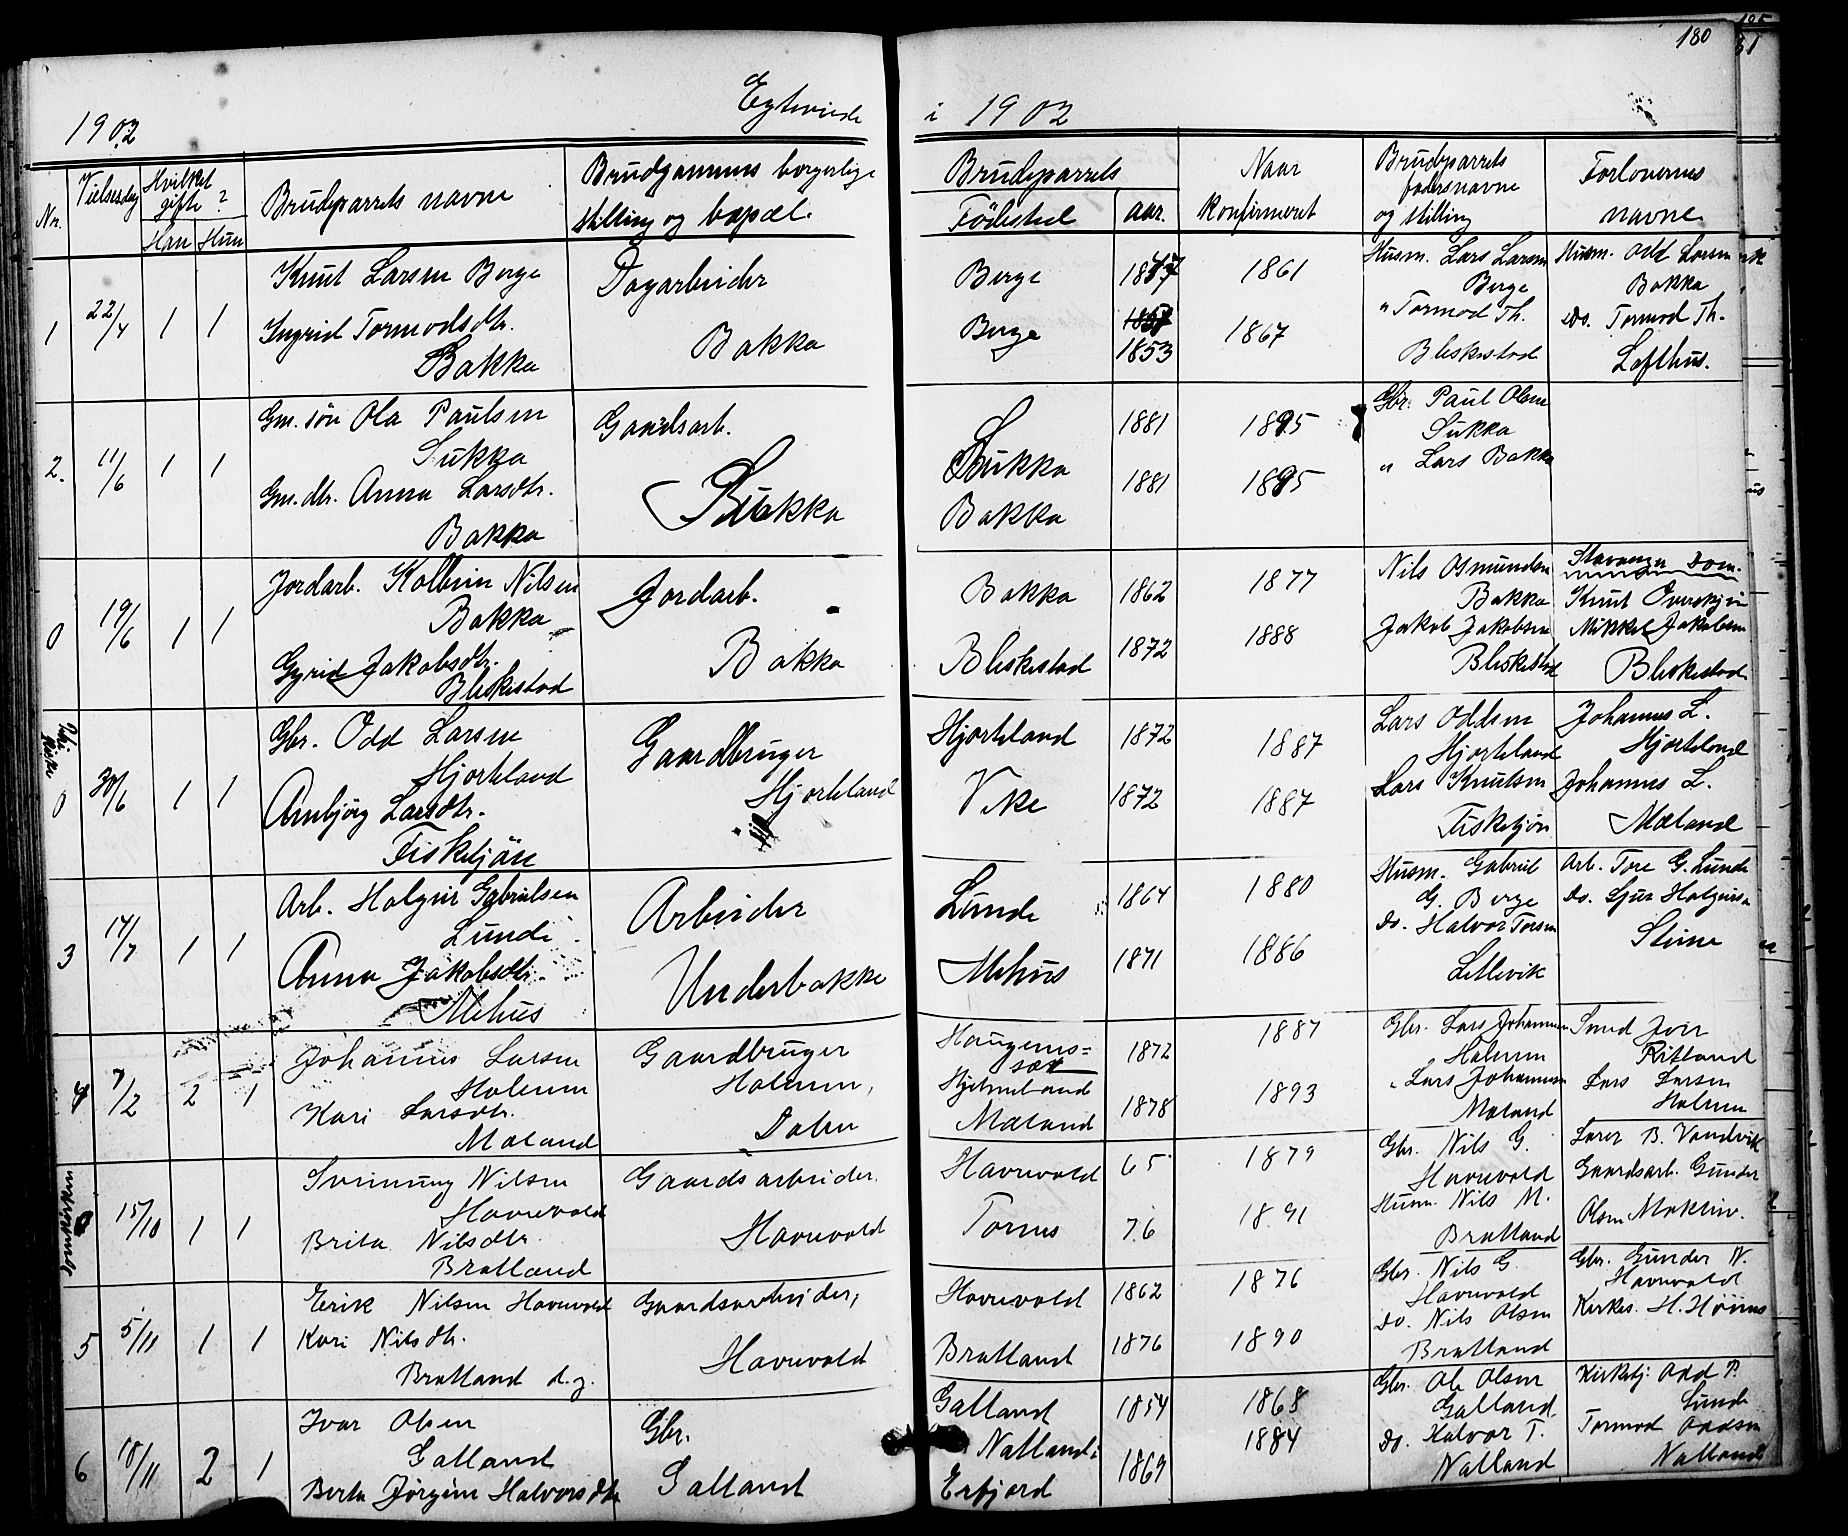 180
1902
Egteviede i 1902
Nr.
Vielsesdag
Hvilket gifte?
Han Hun
Brudeparrets navne
Brudgommens borgerlige
stilling og bopæl.
Brudeparrets
Fødested
aar.
Naar
konfirmeret
Brudeparrets
fadersnavne
og stilling
Forlovernes
navne
1 22/4 1 1
Knut Larsen Berge
Ingrid Tormodsdtr.
Bakka
Dagarbeider
Bakka
Berge 1847 1861
Berge 1853 1867
Husm. Lars Larsen
Berge
" Tormod Th.
Bleskestad
Husm. Odd Larsen
Bakka
Do. Tormod Th.
Lofthus.
2. 11/6 1 1
Gm. søn Ola Paulsen
Sukka
Gm. dtr. Anna Larsdtr.
Bakka
Gaardsarb.
Sukka
Sukka 1881 1895
Bakka 1881 1895
Gbr. Paul Olsen
Sukka
" Lars Bakka
0 19/6 1 1
Jordarb. Kolbein Nilsen
Bakka
Gyrid Jakobsdtr.
Bleskestad
Jordarb.
Bakka
Bakka 1862 1877
Bleskestad 1872 1888
Nils Osmundsen
Bakka
Jakob Jakobsen
Bleskestad
Stavanger Dom.
Knut
Mikkel Jakobsen
Bleskestad
0 30/6 1 1
Gbr. Odd Larsen
Hjorteland
Anbjørg Larsdtr.
Fisketjøn
Gaardbruger
Hjorteland
Hjorteland 1872 1887
Vike 1872 1887
Lars Oddsen
Hjorteland
Lars Knutsen
Fisketjøn
Johannes L.
Hjorteland
Johannes L.
Mæland
3 17/7 1 1
Arb. Holgeir Gabrielsen
Lunde
Anna Jakobsdtr.
Mehus
Arbeider
Underbakke
Lunde 1864 1880
Mehus 1871 1886
Husm. Gabriel
G. Berge
Do. Halvor Torsen
Lillevik
Arb. Tore G. Lunde
Do. Sjur Holgeirsen
Stene
4 7/2 2 1
Johannes Larsen
Holmen
Kari Larsdtr.
Mæland
Gaardbruger
Holmen,
Dalen
Haugens=
sæt 1872 1887
Hjelmeland
Mæland 1878 1893
Gbr. Lars Johannesen
Holmen
" Lars Johannesen
Mæland
Smed Iver
Ritland
Lars Larsen
Holmen
0 15/10 1 1
Sveinung Nilsen
Havrevold
Brita Nilsdtr.
Bratland
Gaardsarbeider.
Havrevold
Havrevold 65 1879
Tornes 76 1891
Gbr. Nils G.
Havrevold
Husm. Nils M.
Bratland
Lærer B. Vandvik
Gaardsarb. Gunder
Olsen Moktein.
5 5/11 1 1
Erik Nilsen Havrevold
Kari Nilsdtr.
Bratland d.y.
Gaardsarbeider,
Havrevold
Havrevold 1862 1876
Bratland 1876 1890
Gbr. Nils G.
Havrevold
Do. Nils Olsen
Bratland
Gbr. Gunder N.
Havrevold
Kirkes. H. Høines
6 18/11 2 1
Ivar Olsen
Galland
Berta Jørgine Halvorsdtr.
Gbr.
Galland
Galland 1854 1868
Natland i
Erfjord 1869 1884
Gbr. Ole Olsen
Galland
Do. Halvor T.
Natland
Kirketj. Odd P.
Lunde
Tormod Oddsen
Natland